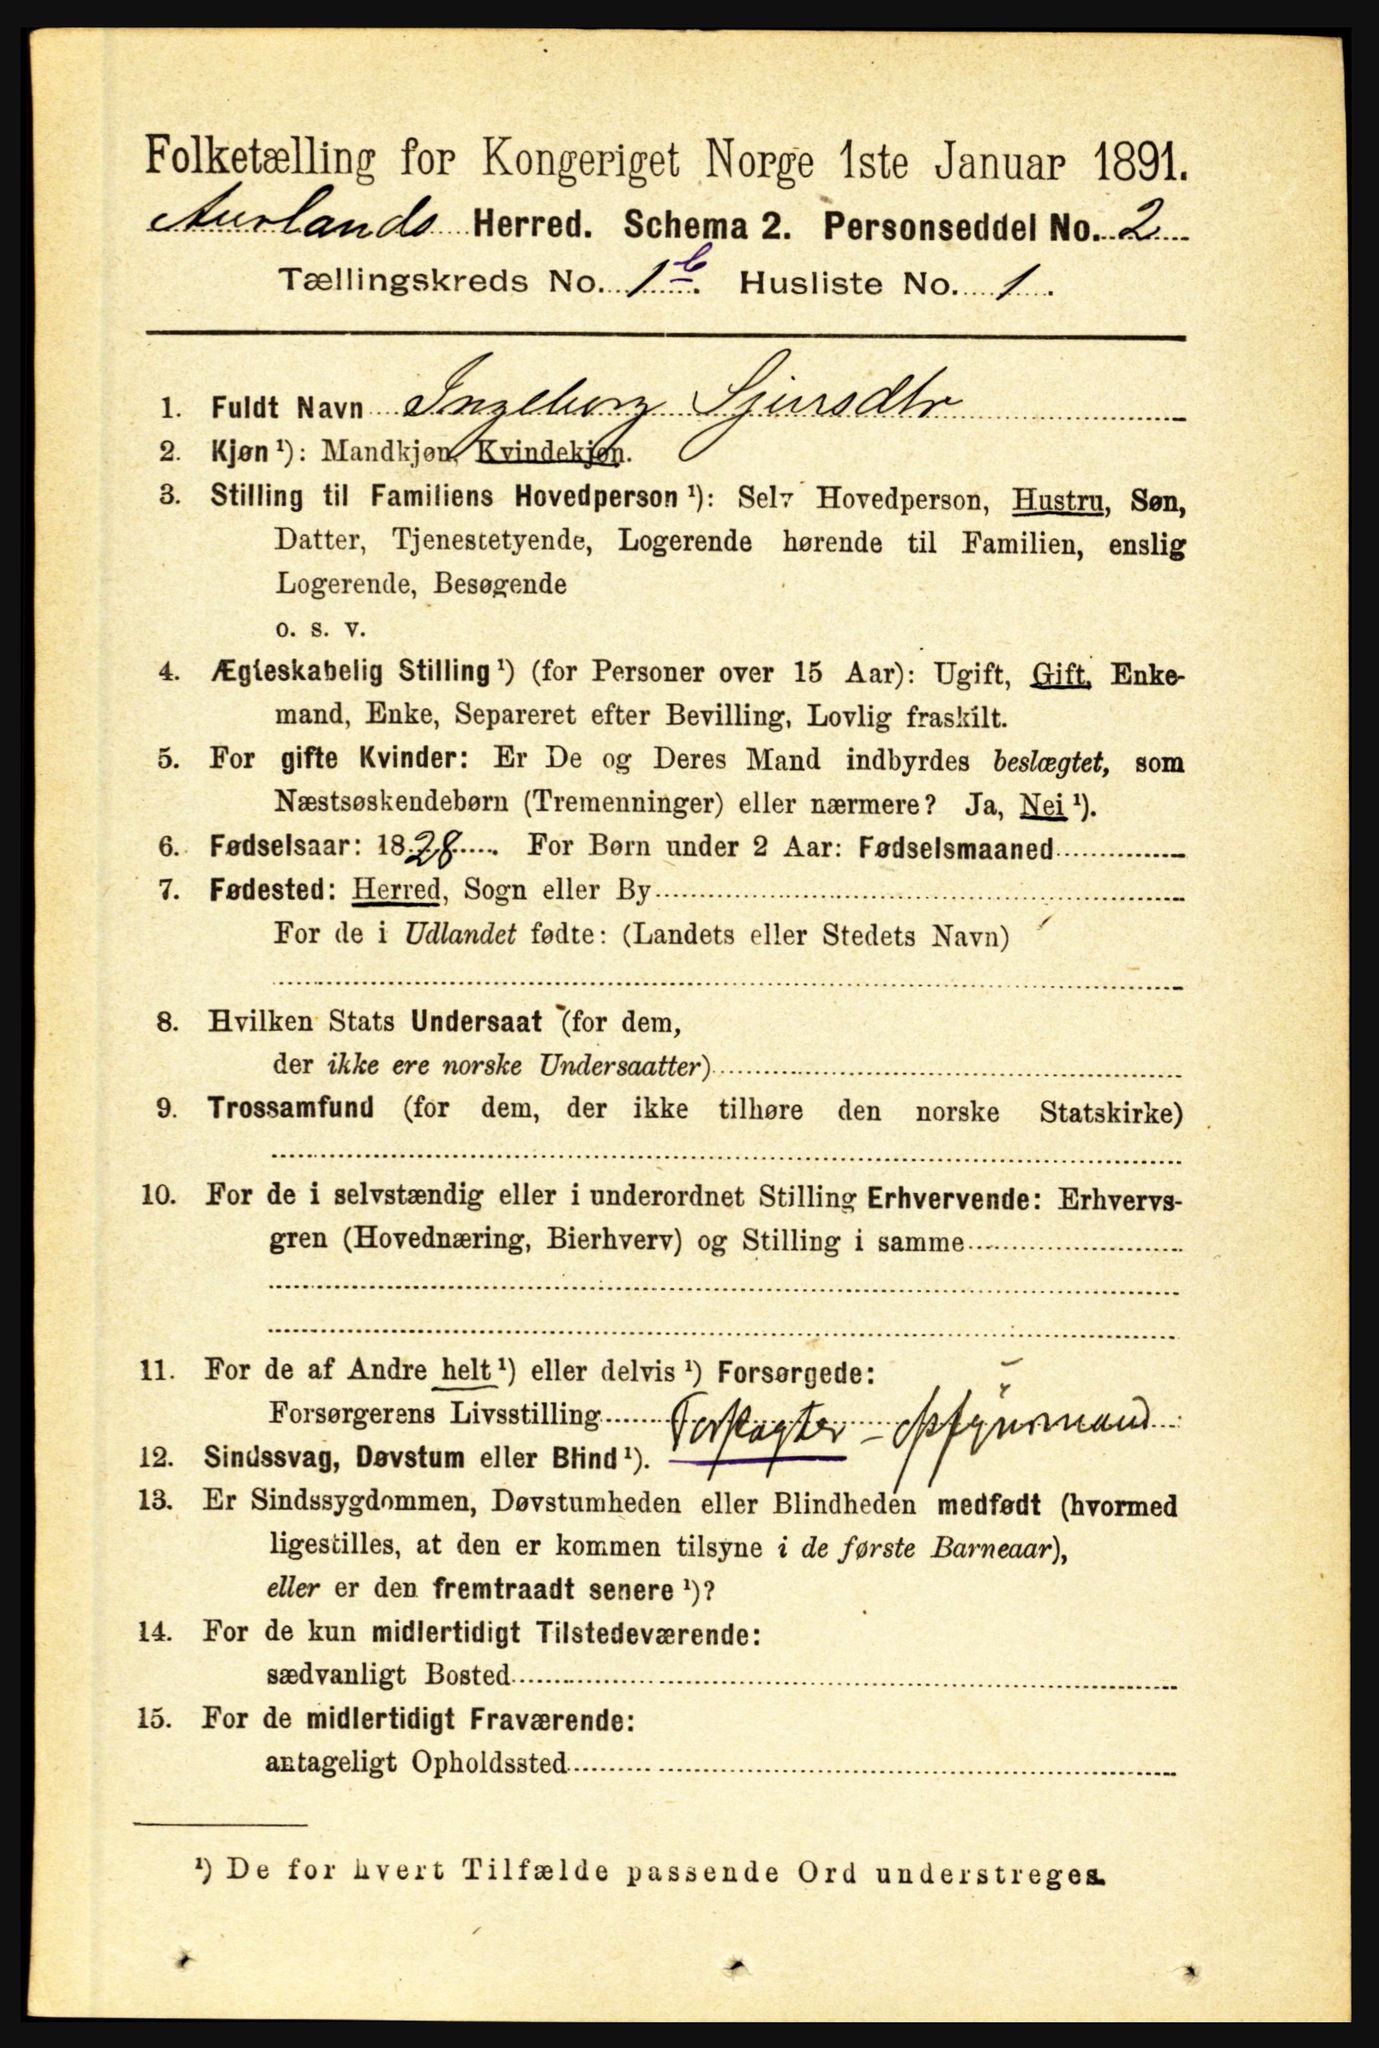 Folketælling for Kongeriget Norge 1ste Januar 1891.
Aurlands Herred. Schema 2. Personseddel No. 2
Tællingskreds No. 1 b. Husliste No. 1.
1. Fuldt Navn Ingeborg Sjursdtr
2. Kjøn ¹): Mandkjøn, Kvindekjøn.
3. Stilling til Familiens Hovedperson ¹): Selv Hovedperson, Hustru, Søn,
Datter, Tjenestetyende, Logerende hørende til Familien, enslig
Logerende, Besøgende
o. s. v.
4. Ægteskabelig Stilling ¹) (for Personer over 15 Aar): Ugift, Gift, Enke-
mand, Enke, Separeret efter Bevilling, Lovlig fraskilt.
5. For gifte Kvinder: Er De og Deres Mand indbyrdes beslægtet, som
Næstsøskendebørn (Tremenninger) eller nærmere? Ja, Nei ¹).
6. Fødselsaar: 1828. For Børn under 2 Aar: Fødselsmaaned
7. Fødested: Herred, Sogn eller By
For de i Udlandet fødte: (Landets eller Stedets Navn)
8. Hvilken Stats Undersaat (for dem,
der ikke ere norske Undersaatter)
9. Trossamfund (for dem, der ikke tilhøre den norske Statskirke)
10. For de i selvstændig eller i underordnet Stilling Erhvervende: Erhvervs-
gren (Hovednæring, Bierhverv) og Stilling i samme
11. For de af Andre helt ¹) eller delvis ¹) Forsørgede:
Forsørgerens Livsstilling Forpagter
12. Sindssvag, Døvstum eller Blind ¹).
13. Er Sindssygdommen, Døvstumheden eller Blindheden medfødt (hvormed
ligestilles, at den er kommen tilsyne i de første Barneaar),
eller er den fremtraadt senere ¹)?
14. For de kun midlertidigt Tilstedeværende:
sædvanligt Bosted
15. For de midlertidigt Fraværende:
antageligt Opholdssted
¹) De for hvert Tilfælde passende Ord understreges.